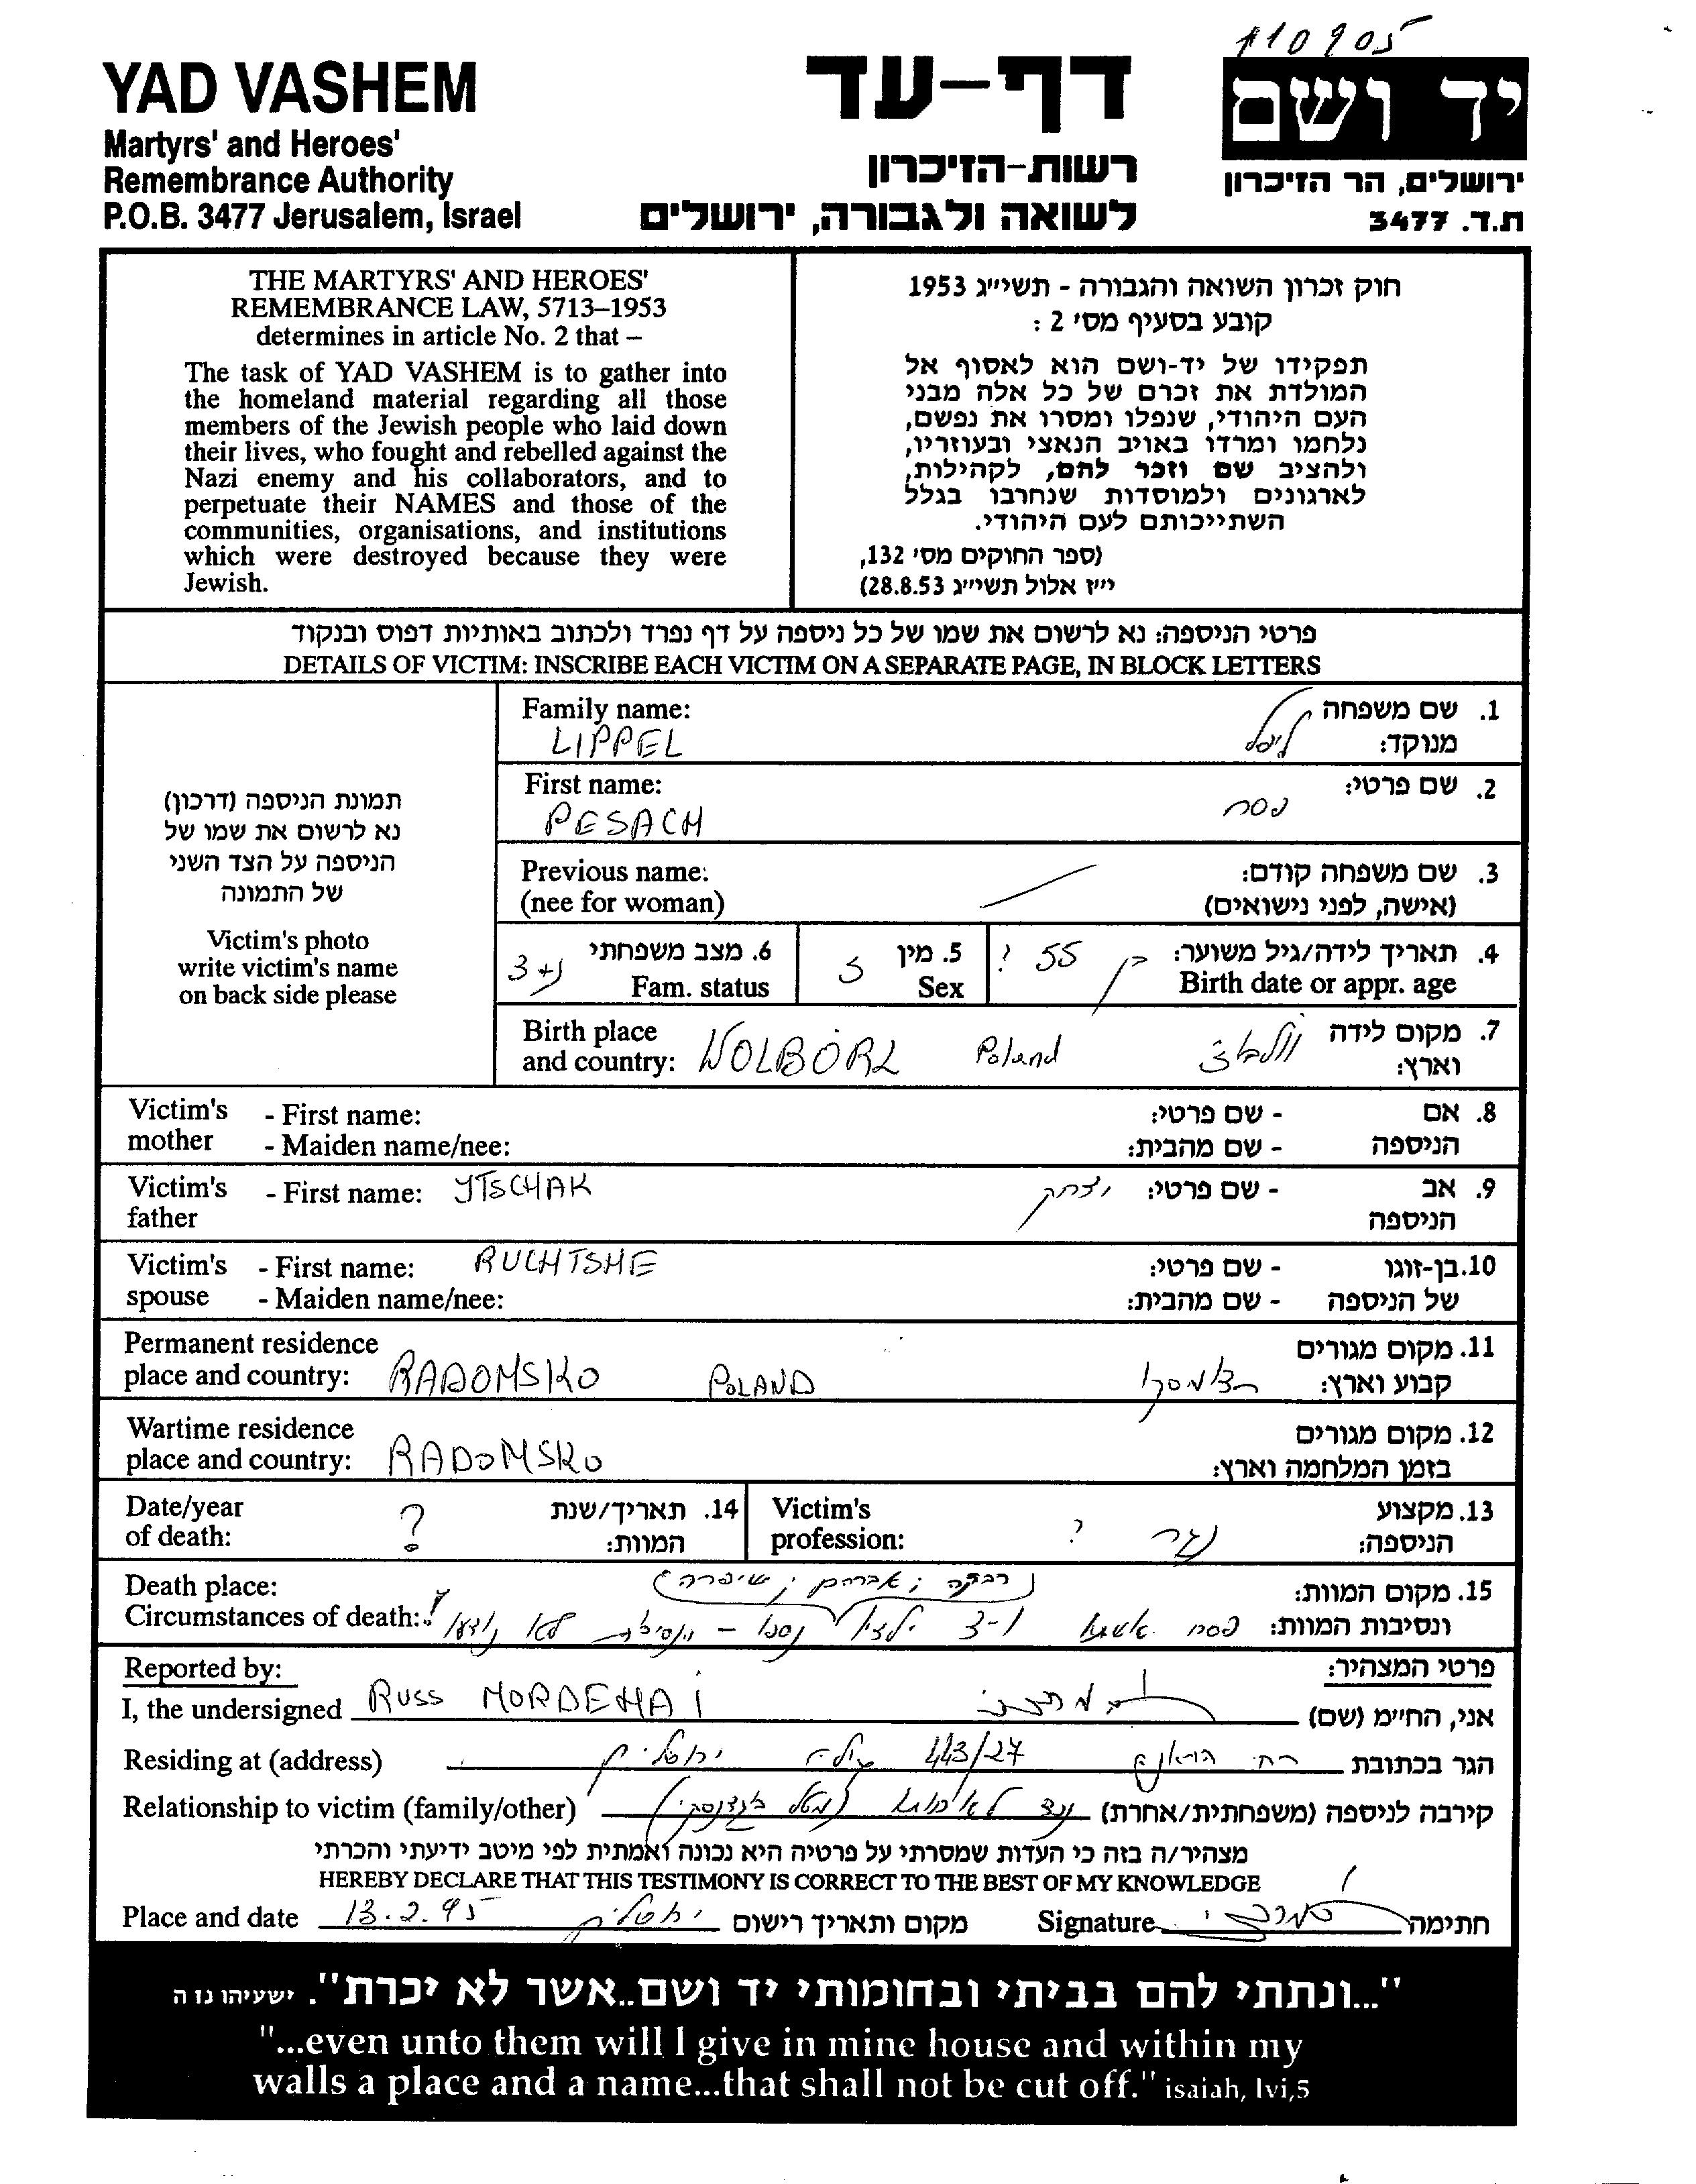 110905
YAD VASHEM
Martyrs' and Heroes'
Remembrance Authority
P.O.B. 3477 Jerusalem, Israel
דף-עד
רשות-הזיכרון
לשואה ולגבורה, ירושלים
יד ושם
ירושלים, הר הזיכרון
ת.ד. 3477
THE MARTYRS' AND HEROES'
REMEMBRANCE LAW, 5713–1953
determines in article No. 2 that –
The task of YAD VASHEM is to gather into
the homeland material regarding all those
members of the Jewish people who laid down
their lives, who fought and rebelled against the
Nazi enemy and his collaborators, and to
perpetuate their NAMES and those of the
communities, organisations, and institutions
which were destroyed because they were
Jewish.
חוק זכרון השואה והגבורה - תשי״ג 1953
קובע בסעיף מס׳ 2 :
תפקידו של יד-ושם הוא לאסוף אל
המולדת את זכרם של כל אלה מבני
העם היהודי, שנפלו ומסרו את נפשם,
נלחמו ומרדו באויב הנאצי ובעוזריו,
ולהציב שם וזכר להם, לקהילות,
לארגונים ולמוסדות שנחרבו בגלל
השתייכותם לעם היהודי.
(ספר החוקים מס׳ 132,
י״ז אלול תשי״ג 28.8.53)
פרטי הניספה: נא לרשום את שמו של כל ניספה על דף נפרד ולכתוב באותיות דפוס ובנקוד
DETAILS OF VICTIM: INSCRIBE EACH VICTIM ON A SEPARATE PAGE, IN BLOCK LETTERS
תמונת הניספה (דרכון)
נא לרשום את שמו של
הניספה על הצד השני
של התמונה
Victim's photo
write victim's name
on back side please
Family name: 1. שם משפחה
LIPPEL ליפל מנוקד:
First name: 2. שם פרטי:
PESACH פסח
Previous name: 3. שם משפחה קודם:
(nee for woman) (אישה, לפני נישואים)
4. תאריך לידה/גיל משוער: בן 55 ?
Birth date or appr. age
5. מין ז
Sex
6. מצב משפחתי נ+3
Fam. status
Birth place 7. מקום לידה
and country: WOLBÓRZ Poland וולבוז וארץ:
Victim's - First name: - שם פרטי: 8. אם
mother - Maiden name/nee: - שם מהבית: הניספה
Victim's - First name: YTSCHAK יצחק - שם פרטי: 9. אב
father הניספה
Victim's - First name: RUCHTSHE - שם פרטי: 10. בן-זוגו
spouse - Maiden name/nee: - שם מהבית: של הניספה
Permanent residence 11. מקום מגורים
place and country: RADOMSKO POLAND רדומסקו קבוע וארץ:
Wartime residence 12. מקום מגורים
place and country: RADOMSKO בזמן המלחמה וארץ:
Date/year ? 14. תאריך/שנת
of death: המוות:
Victim's ? נגר 13. מקצוע
profession: הניספה:
Death place: (רבקה ; אברהם ; שיפרה) 15. מקום המוות:
Circumstances of death: ונסיבות המוות: פסח אשתו ו-3 ילדיו נספו - לא
Reported by: פרטי המצהיר:
I, the undersigned RUSS MORDEHAI מרדכי אני, החיימ (שם)
Residing at (address) הגר בכתובת רח׳ 443/27 גילה ירושלים
Relationship to victim (family/other) קירבה לניספה (משפחתית/אחרת)
מצהיר/ה בזה כי העדות שמסרתי על פרטיה היא נכונה ואמתית לפי מיטב ידיעתי והכרתי
HEREBY DECLARE THAT THIS TESTIMONY IS CORRECT TO THE BEST OF MY KNOWLEDGE
Place and date 13.2.95 ירושלים מקום ותאריך רישום Signature חתימה
"...ונתתי להם בביתי ובחומותי יד ושם..אשר לא יכרת". ישעיהו נו ה
"...even unto them will I give in mine house and within my
walls a place and a name...that shall not be cut off." isaiah, lvi,5